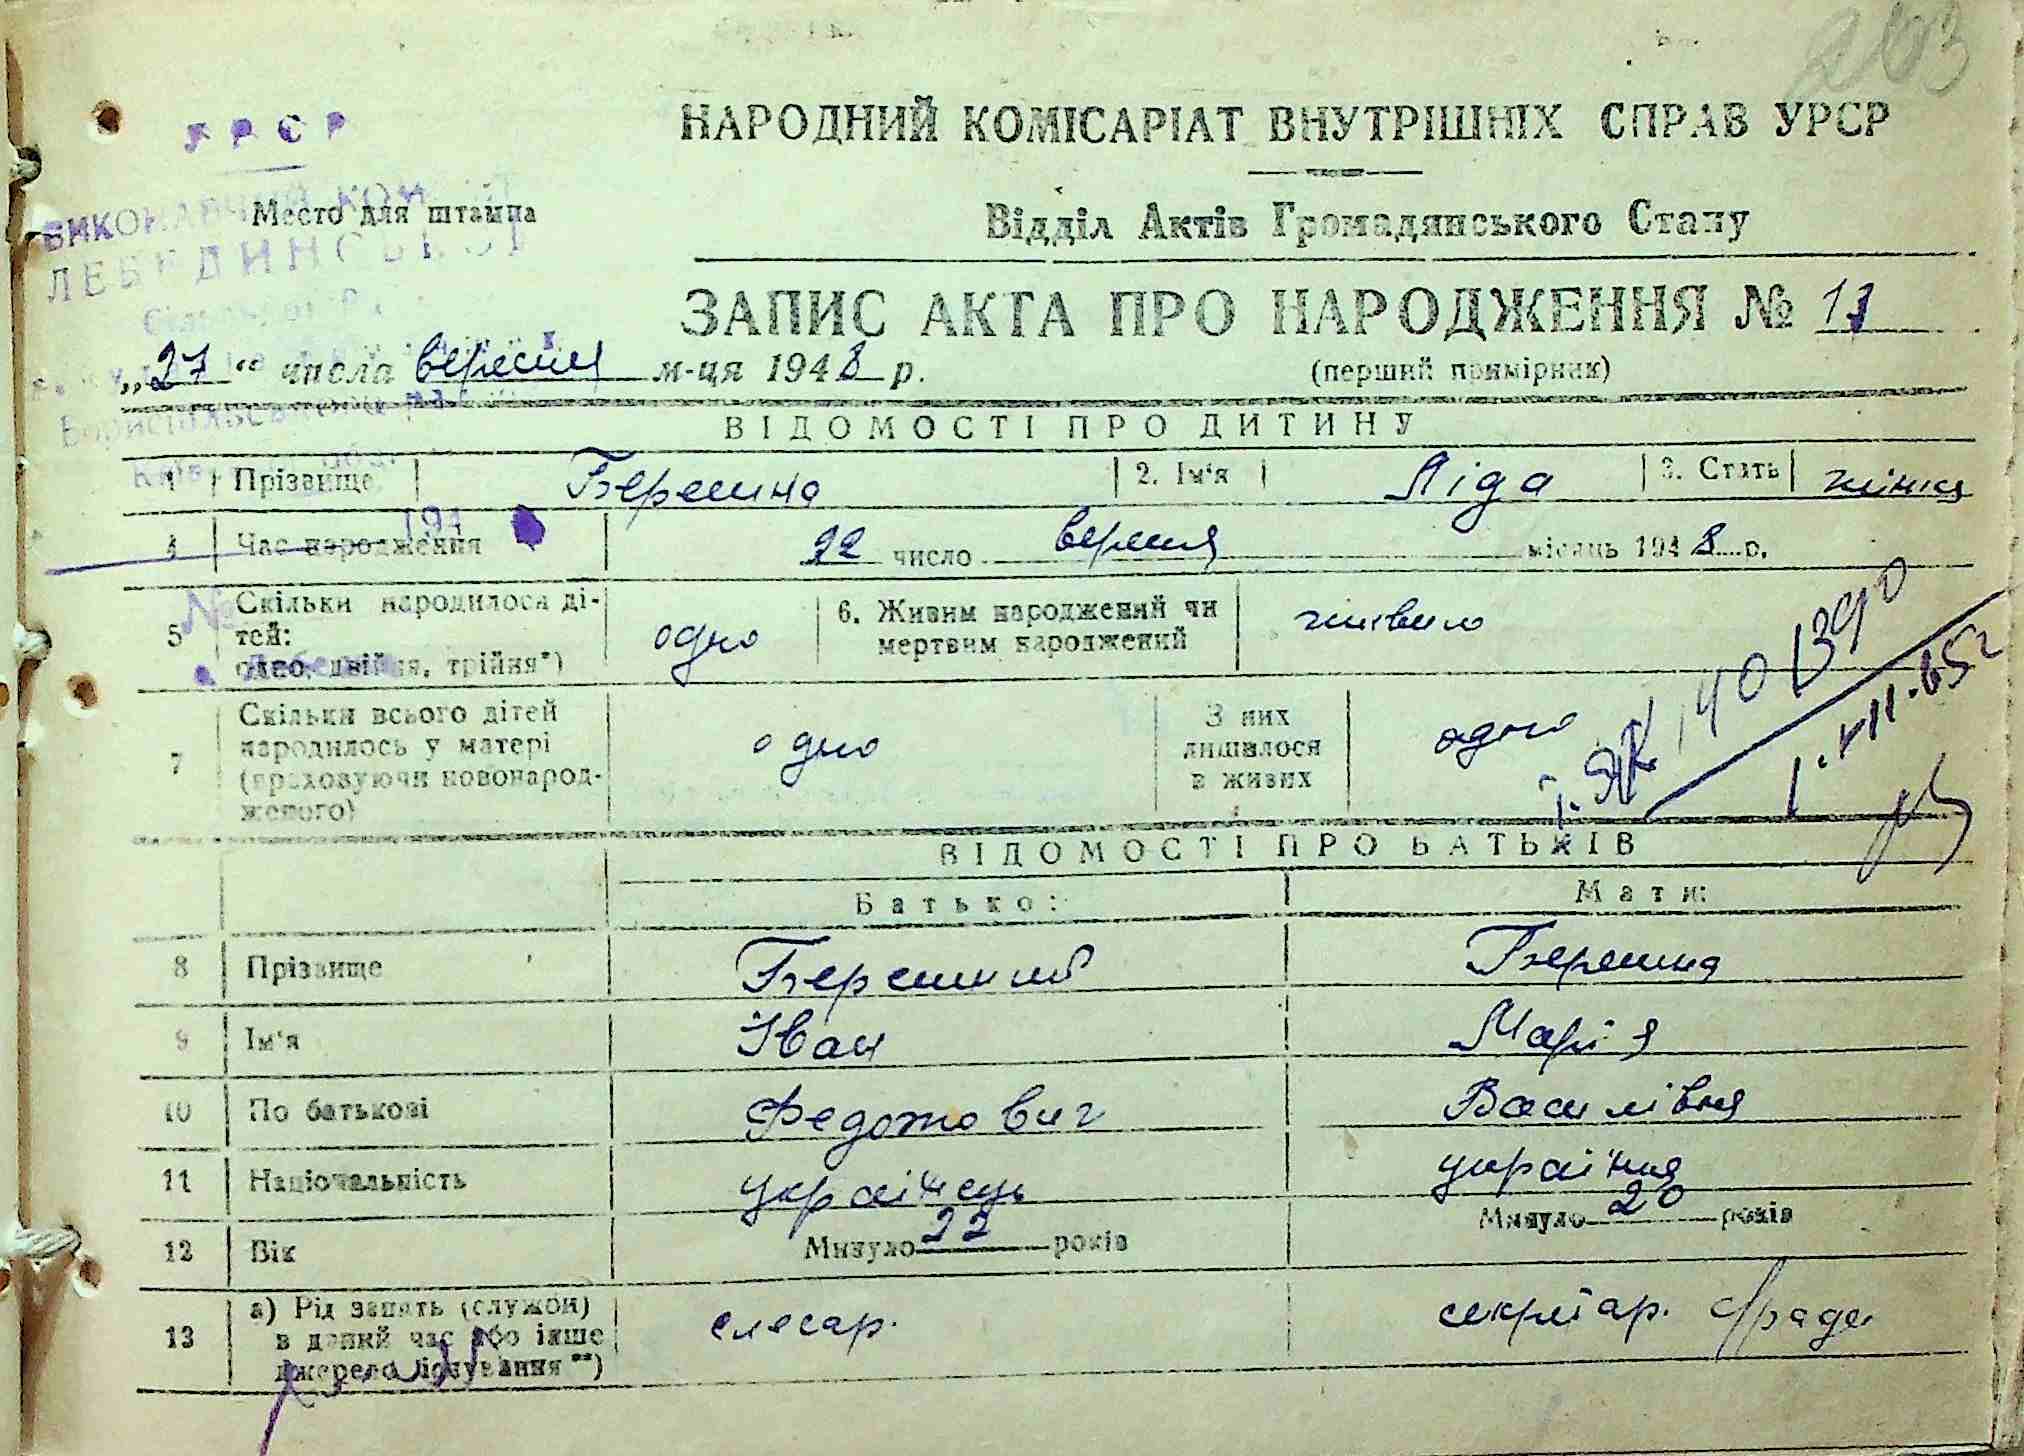 203
УРСР
НАРОДНИЙ КОМІСАРІАТ ВНУТРІШНІХ СПРАВ УРСР
ВИКОНАВЧИЙ КОМ
Место для штампа
Відділ Актів Громадянського Стану
ЛЕБЕДИНСЬКОЇ
ЗАПИС АКТА ПРО НАРОДЖЕННЯ № 17
„27“ числа вересня м-ця 1948 р.
(перший примірник)
ВІДОМОСТІ ПРО ДИТИНУ
1 Прізвище 2. Ім'я Ліда 3. Стать жінка
194
4 Час народження 22 число вересня місяць 1948 р.
№
5 Скільки народилося ді-
тей:
одно, двійня, трійня*) одно 6. Живим народжений чи
мертвим народжений живило
7 Скільки всього дітей
народилось у матері
(враховуючи новонарод-
женого) одно З них
лишилося
в живих одно
1.VII.65г
ВІДОМОСТІ ПРО БАТЬКІВ
Батько: Мати:
8 Прізвище
9 Ім'я Іван Марія
10 По батькові Федотович Василівня
11 Національність українець україння
12 Вік Минуло 22 років Минуло 20 років
13 а) Рід занять (служби)
в даний час або інше
джерело існування **) слесар. секретар. с/ради